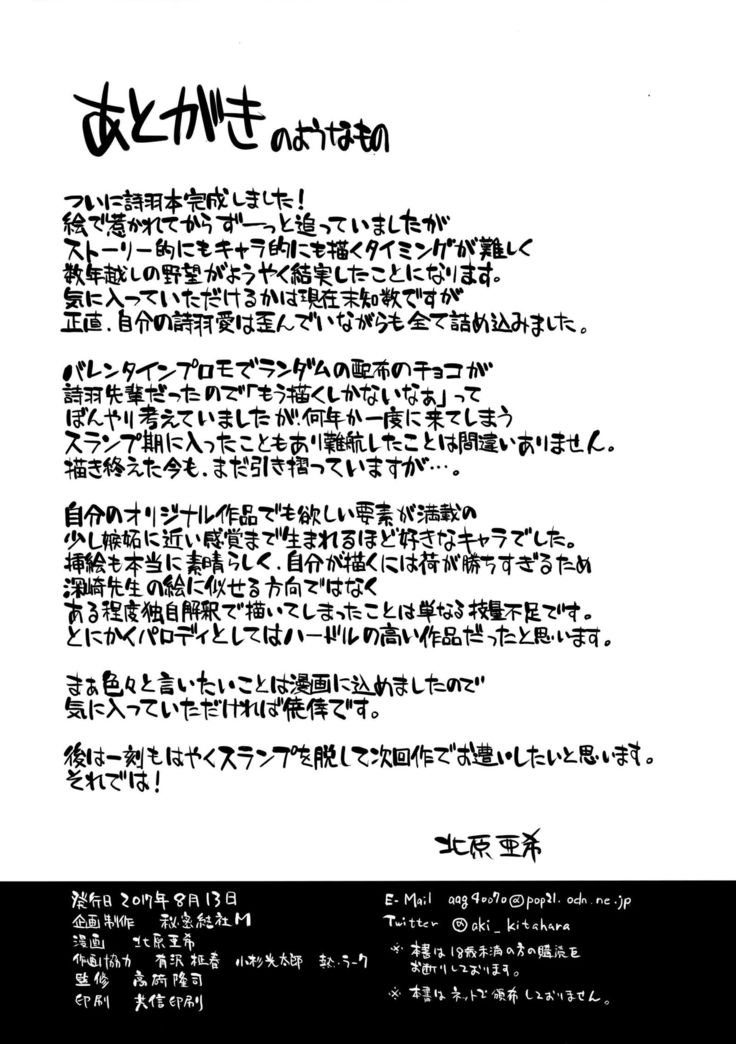 あとがきのようなもの
ついに詩羽本完成しました!
絵で惹かれてからずーっと追っていましたが
ストーリー的にもキャラ的にも描くタイミングが難しく
数年越しの野望がようやく結実したことになります。
気に入っていただけるかは現在未知数ですが
正直、自分の詩羽愛は歪んでいながらも全て詰め込みました。
バレンタインプロモでランダムの配布のチョコが
詩羽先輩だったので「もう描くしかないなぁ」って
ぼんやり考えていましたが、何年か一度に来てしまう
スランプ期に入ったこともあり難航したことは間違いありません。
描き終えた今も、まだ引き摺っていますが…。
自分のオリジナル作品でも欲しい要素が満載の
少し嫉妬に近い感覚まで生まれるほど好きなキャラでした。
挿絵も本当に素晴らしく、自分が描くには荷が勝ちすぎるため
深崎先生の絵に似せる方向ではなく
ある程度独自解釈で描いてしまったことは単なる技量不足です。
とにかくパロディとしてはハードルの高い作品だったと思います。
まぁ色々と言いたいことは漫画に込めましたので
気に入っていただければ僥倖です。
後は一刻もはやくスランプを脱して次回作でお遭いしたいと思います。
それでは!
北原亜希
発行日 2017年8月13日
企画制作 秘密結社M
漫画 北原亜希
作画協力 有沢 柾春 小杉光太郎
監修 高崎隆司
印刷 大信印刷
E-Mail aag40070@pop21.odn.ne.jp
Twitter @aki_kitahara
※ 本書は18歳未満の方の購読を
お断りしております。
※ 本書はネットで頒布しておりません。